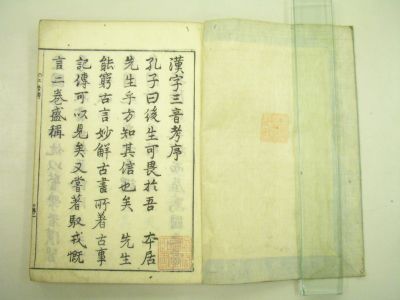 漢字三音考序
孔子曰後生可畏於吾 本居
先生乎方知其信也矣 先生
能窮古言妙解古書所著古事
記傳可以見矣又嘗著馭戎慨
言二卷盛稱